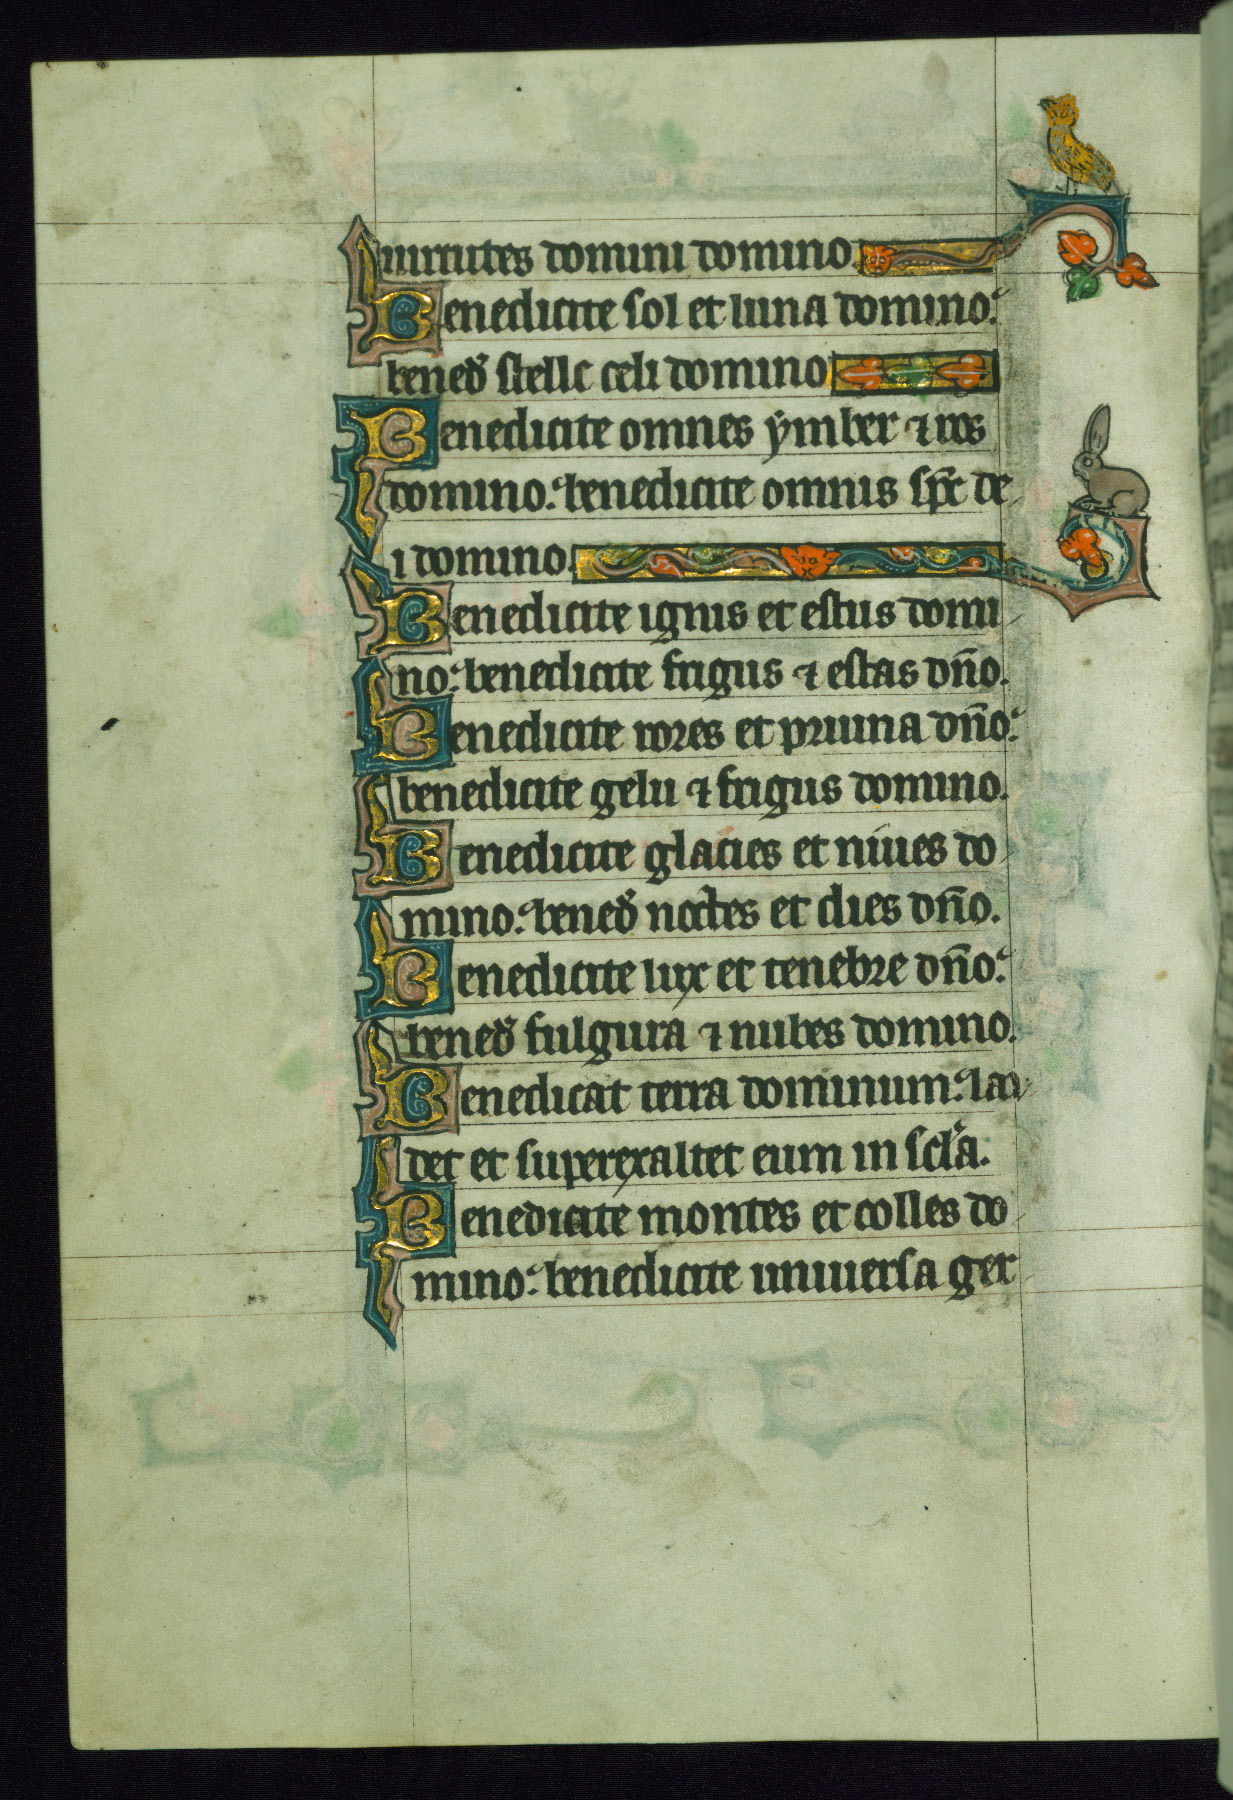 uirtutes domini domino.
Benedicite sol et luna domino:
bened̄ stelle celi domino
Benedicite omnes ymber ⁊ ros
domino: benedicite omnis sp̄c de
i domino.
Benedicite ignis et estus domi
no: benedicite frigus ⁊ estas dn̄o.
Benedicite rores et pruina dn̄o:
benedicite gelu ⁊ frigus domino.
Benedicite glacies et niues do
mino: bened̄ noctes et dies dn̄o.
Benedicite lux et tenebre dn̄o:
bened̄ fulgura ⁊ nubes domino.
Benedicat terra dominum: lau
det et superexaltet eum in sc̄la.
Benedicite montes et colles do
mino: benedicite uniuersa ger